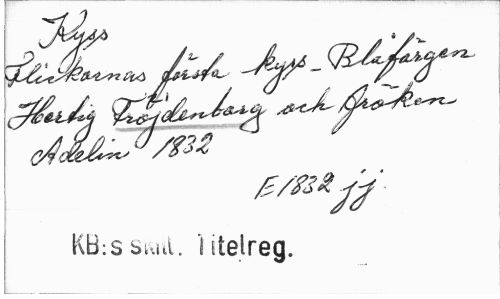 Kyss
Flickornas första kyss - Blåfärgen
Hertig Fröjdenborg och fröken
Adelin 1832
E 1832 jj.
KB:s skill. Titelreg.